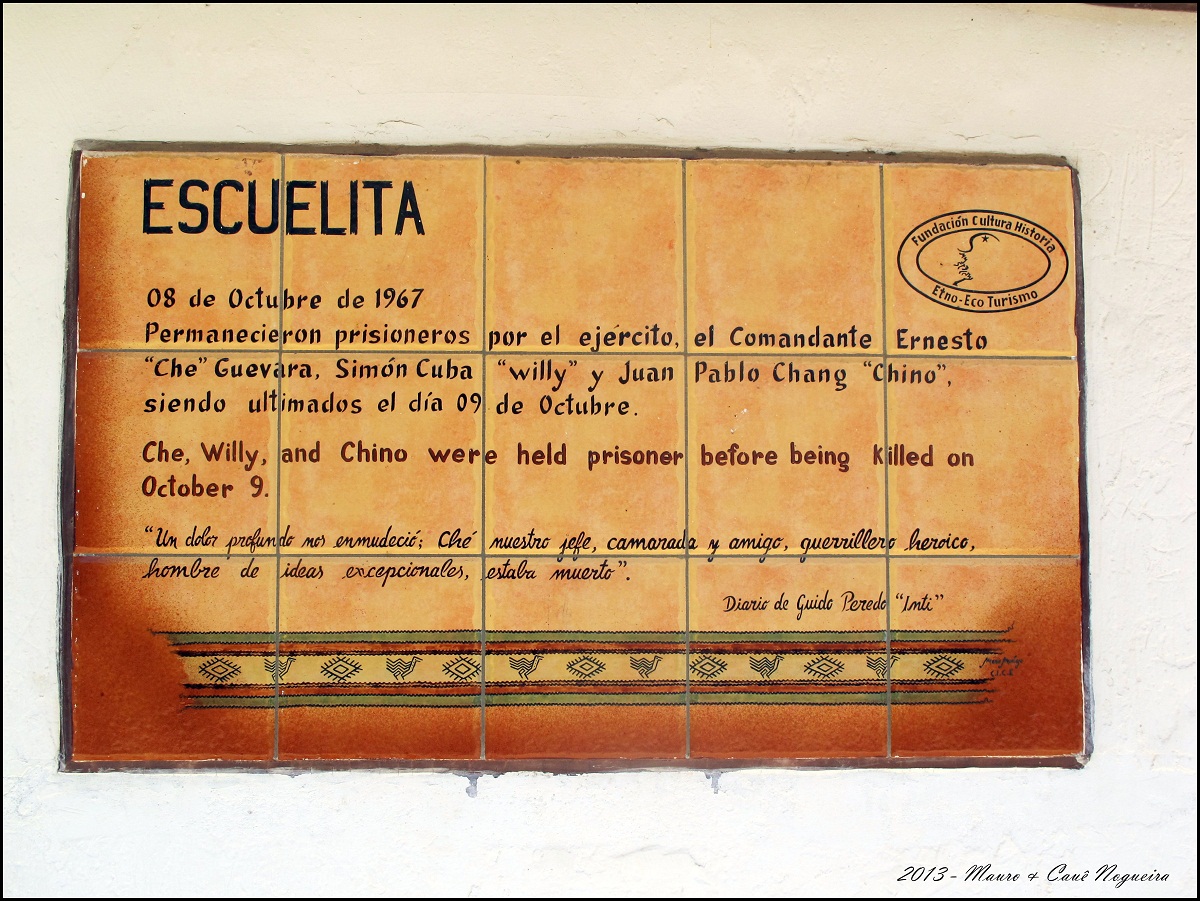 ESCUELITA
Fundación Cultura Historia
Etno-Eco Turismo
08 de Octubre de 1967
Permanecieron prisioneros por el ejército, el Comandante Ernesto
"Che" Guevara, Simón Cuba "willy" y Juan Pablo Chang "Chino",
siendo ultimados el día 09 de Octubre.
Che, Willy, and Chino were held prisoner before being killed on
October 9.
"Un dolor profundo nos enmudeció; Ché nuestro jefe, camarada y amigo, guerrillero heroico,
hombre de ideas excepcionales, estaba muerto".
Diario de Guido Peredo "Inti"
2013 - Mauro & Cauê Nogueira